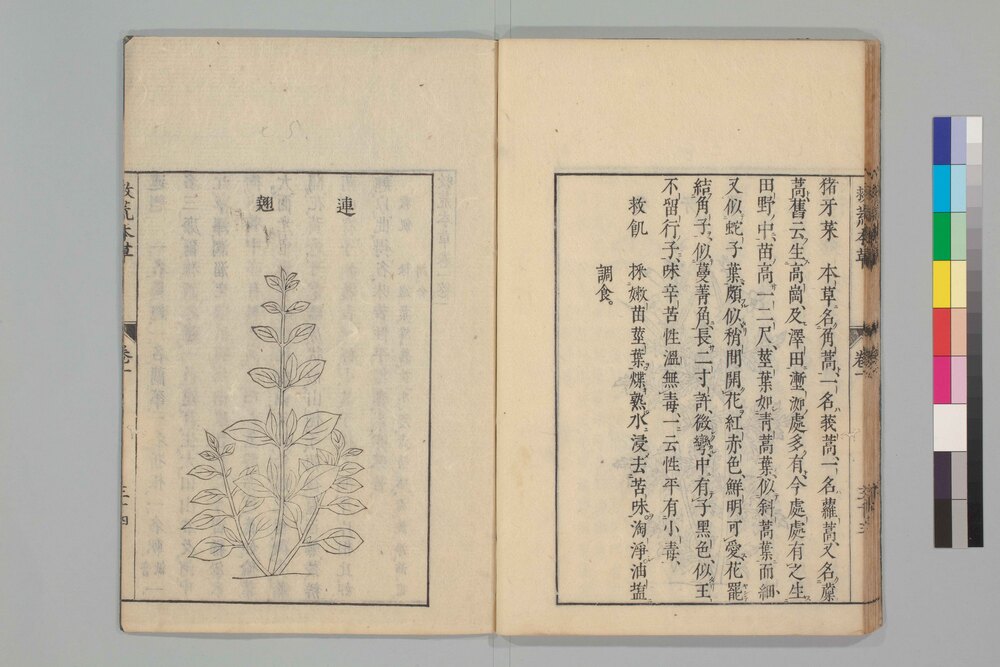 猪牙菜　本草名角蒿、一名莪蒿、一名蘿蒿、又名藁
蒿、舊云生高崗、及澤田漸洳處多有、今處處有之、生
田野中、苗高一二尺、莖葉如靑蒿葉、似斜蒿葉而細、
又似蛇子葉、頗似稍間開花紅赤色、鮮明可愛、花罷
結角子、似蔓菁角、長二寸許、微彎、中有子黑色、似王
不留行子、味辛苦性溫無毒、一云性平有小毒、
救飢　採嫩苗莖葉煠熟水浸去苦味、淘淨油塩
調食。
連
翹
救荒本草
卷一
三十四